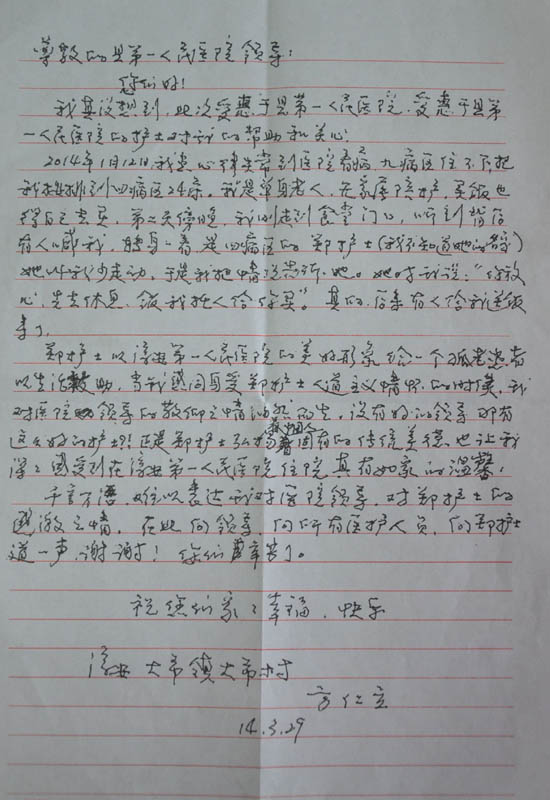 尊敬的县第一人民医院领导：
您们好！
我真没想到，此次受惠于县第一人民医院，受惠于县第
一人民医院的护士对我的帮助和关心
2014年1月12日我患心律失常到医院看病，九病区住不下把
我安排到四病区24床，我是单身老人，在家医院护，买饭也
得自己去买，第二天傍晚，我刚走到食堂门口，听到背后
有人喊我，转身一看是四病区的郑护士(我不知道她的名字)
她叫我少走动，于是我把情况告诉她。她对我说："你放
心，先去休息，饭我托人给你买"。真的，后来有人给我送饭
来了。
郑护士以淳安第一人民医院的美好形象给一个孤老患者
以生活救助，当我感同身受郑护士人道主义情怀的时候，我
对医院领导的敬仰之情油然而生，没有好的领导那有
这么好的护士？！正是郑护士弘扬中国人固有的传统美德，也让我
深深感受到在淳安第一人民医院住院真有如家的温馨，
千言万语，难以表达我对医院领导，对郑护士的
感激之情，在此向领导，向所有医护人员，向郑护士
道一声，谢谢！您们辛苦了。
祝您们家家幸福，快乐
淳安大市镇大市村
方仁立
14.3.29